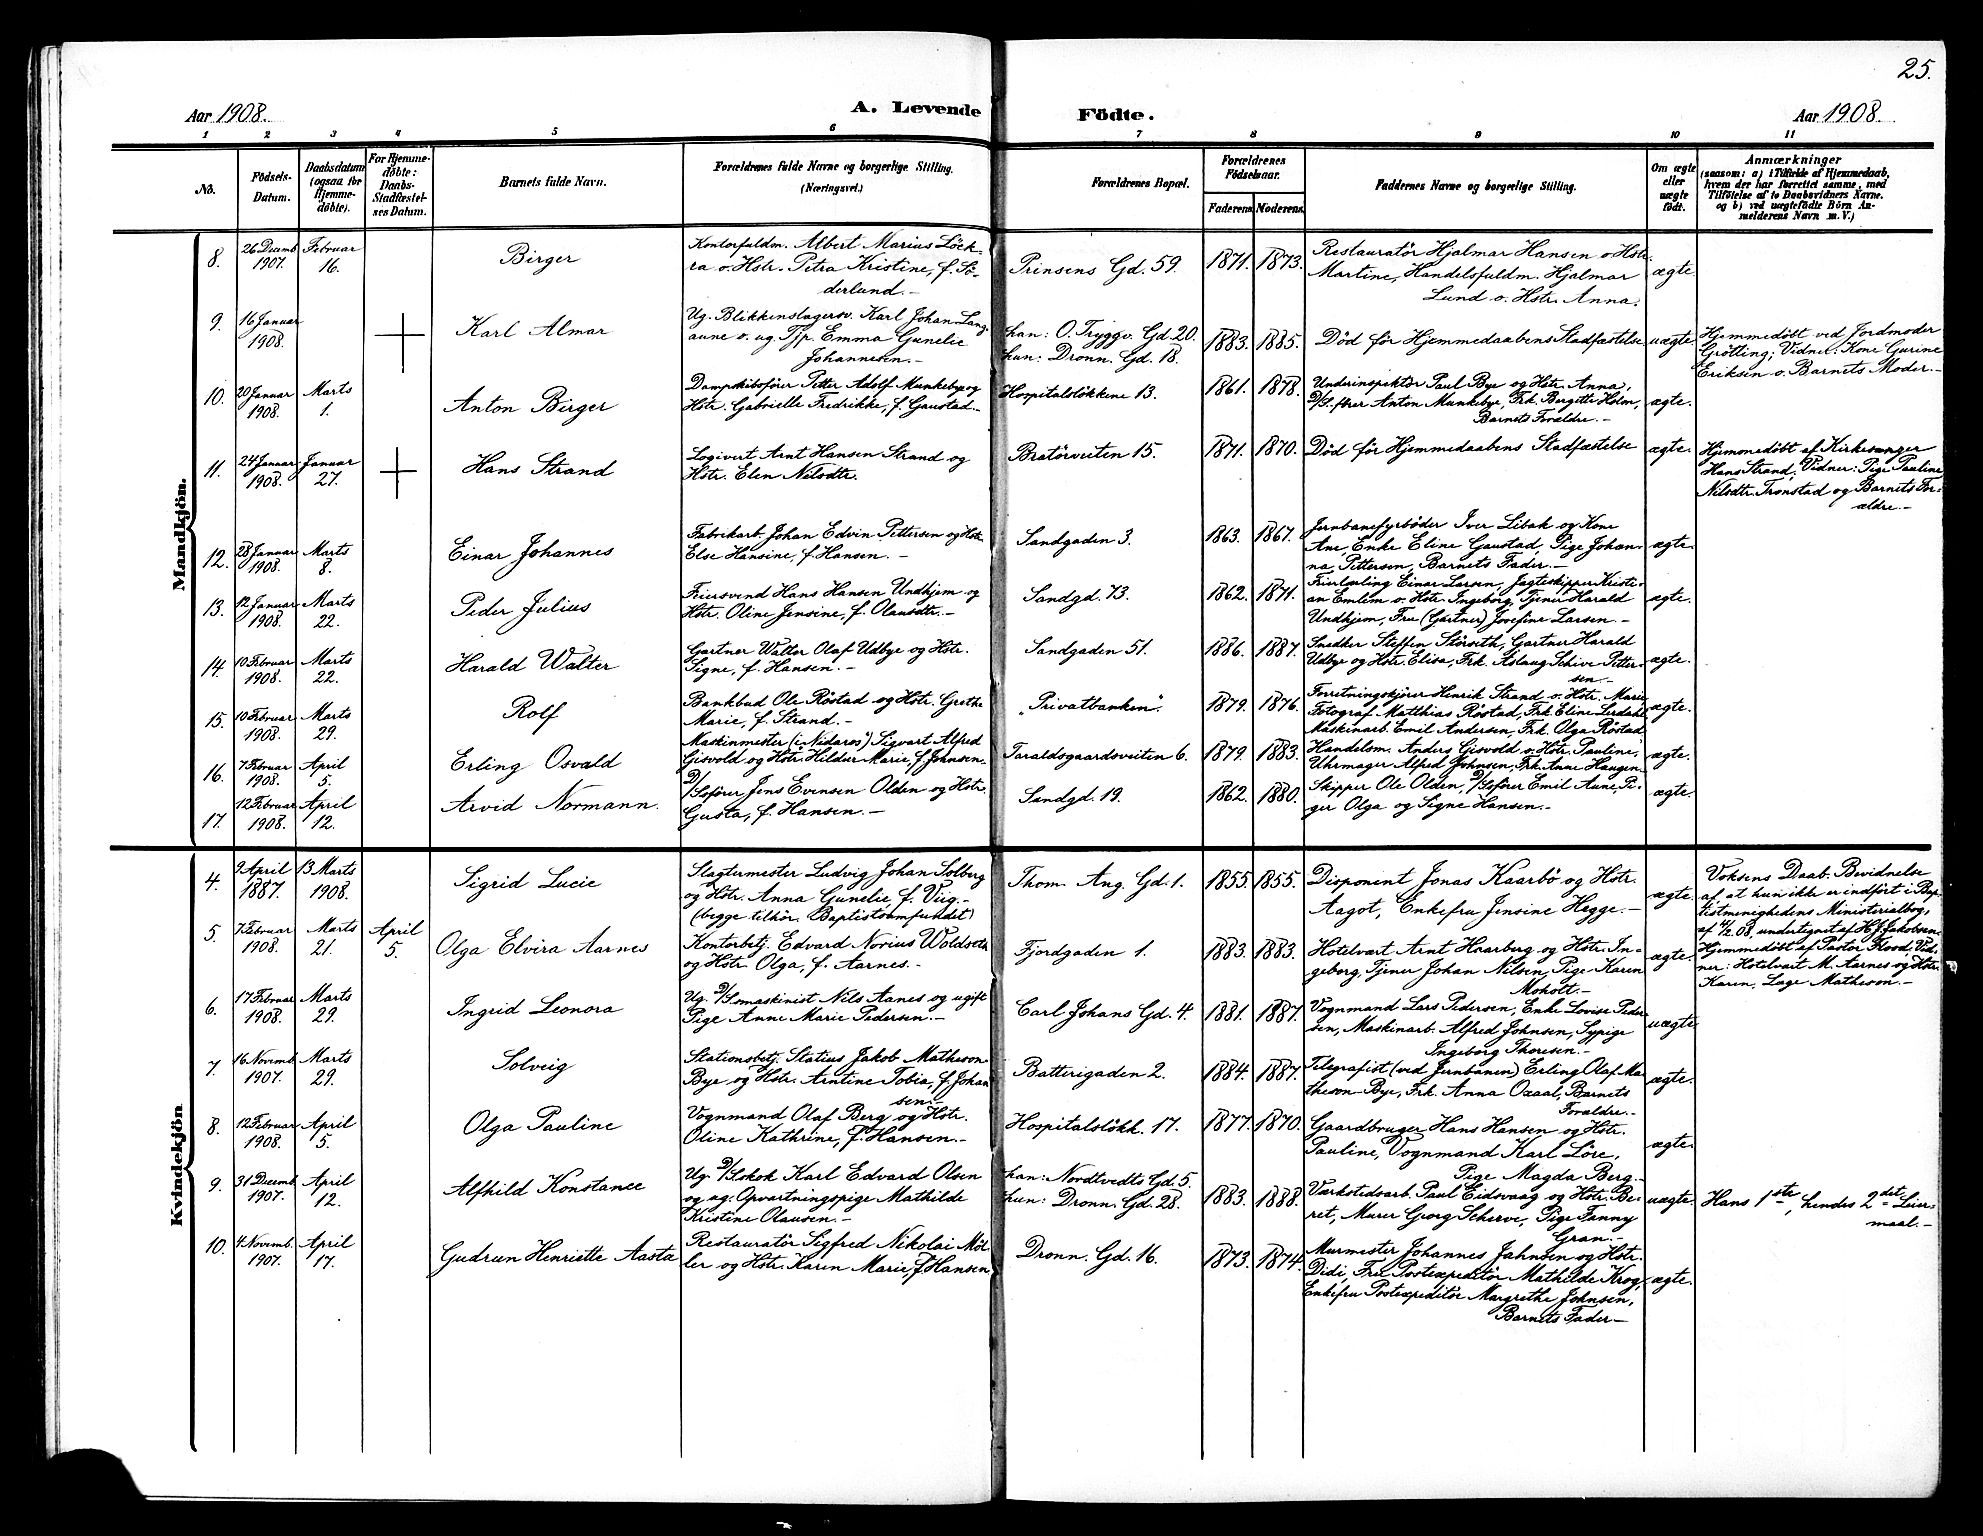 25.
Aar 1908.
A. Levende Födte.
Aar 1908.
1 2 3 4 5 6 7 8 9 10 11
No.
Födsels-
Datum.
Daabsdatum
(ogsaa for
Hjemme-
döbte).
For Hjemme-
döbte:
Daabs-
Stadfæstel-
ses Datum.
Barnets fulde Navn.
Forældrenes fulde Navne og borgerlige Stilling.
(Næringsvei.)
Forældrenes Bopæl.
Forældrenes
Födselsaar.
Faderens Moderens
Faddernes Navne og borgerlige Stilling.
Om ægte
eller
uægte
födt.
Anmærkninger
(saasom: a) i Tilfælde af Hjemmedaab,
hvem der har forrettet samme, med
Tilföielse af to Daabsvidners Navne.
og b) ved uægtefödte Börn An-
melderens Navn m. V.)
Mandkjön.
8.
26 Decemb.
1907.
Februar
16.
Birger
Kontorfuldm. Albert Marius Löck-
ra o. Hstr. Petra Kristine, f. Sö-
derlund.-
Prinsens Gd. 59.
1871. 1873.
Restauratör Hjalmar Hansen o Hstr.
Martine, Handelsfuldm. Hjalmar
Lund o. Hstr. Anna.
ægte.
9.
16 Januar
1908.
Karl Almar
Ug. Blikkenslagersv. Karl Johan Lang-
aune o. ug. Tjp. Emma Gunelie
Johannesen.-
han: O. Tryggv. Gd. 20.
hun: Dronn. Gd. 18.
1883. 1885.
Död för Hjemmedaabens Stadfæstelse
uægte.
Hjemmedöbt ved Jordmoder
Grötting; Vidner: Kone Gurine
Eriksen o. Barnets Moder.-
10.
20 Januar
1908.
Marts
1.
Anton Birger
Dampskibsförer Petter Adolf Munkebye og
Hstr. Gabrielle Fredrikke, f. Gaustad.-
Hospitalslökkene 13.
1861. 1878.
Underinspektör Paul Bye og Hstr. Anna,
D/S. förer Anton Munkebye, Frk. Bergitte Holm,
Barnets Forældre.-
ægte.
11.
24 Januar
1908.
Januar
27.
Hans Strand
Logivert Arnt Hansen Strand og
Hstr. Elen Nilsdtr.
Bratörveiten 15.
1871. 1870.
Död för Hjemmedaabens Stadfæstelse
ægte.
Hjemmedöbt af Kirkesanger
Hans Strand; Vidner: Pige Pauline
Nilsdtr. Trönstad og Barnets For-
ældre.-
12.
28 Januar
1908.
Marts
8.
Einar Johannes
Fabrikarb. Johan Edvin Pettersen og Hstr.
Else Hansine, f. Hansen.-
Sandgaden 3.
1863. 1867.
Jernbanefyrböder Iver Libak og Kone
Ane, Enke Eline Gaustad, Pige Johan-
na Pettersen, Barnets Fader.-
ægte.
13.
12 Januar
1908.
Marts
22.
Peder Julius
Friersvend Hans Hansen Undhjem og
Hstr. Oline Jensine, f. Olausdtr.-
Sandgd. 73.
1862. 1871.
Einar Larsen, Jagteskipper Kristi-
an Emlem o. Hstr. Ingeborg, Tjener Harald
Undhjem, Fru (Gartner) Josefine Larsen.-
ægte.
14.
10 Februar
1908.
Marts
22.
Harald Walter
Gartner Walter Olaf Udbye og Hstr.
Signe, f. Hansen.-
Sandgaden 51.
1886. 1887.
Snedker Steffen Störseth, Gartner Harald
Udbye og Hstr. Elisa, Frk. Aslaug Schive Petter-
sen.-
ægte.
15.
10 Februar
1908.
Marts
29.
Rolf
Bankbud Ole Röstad og Hstr. Grethe
Marie, f. Strand.-
„Privatbanken".
1879. 1876.
Forretningskjörer Henrik Strand o. Hstr. Marie,
Fotograf Matthias Röstad, Frk. Eline Lerdahl,
Maskinarb. Emil Andersen, Frk. Olga Röstad
ægte.
16.
7 Februar
1908.
April
5.
Erling Osvald
Maskinmester (i „Nidaros") Sigvart Alfred
Gisvold og Hstr. Hildur Marie, f. Johnsen.
Taraldsgaardsveiten 6
1879. 1883.
Handelsm. Anders Gisvold o. Hstr. Pauline,
Uhrmager Alfred Johnsen, Frk. Anne Haugen.
ægte.
17.
12 Februar
1908.
April
12.
Arvid Normann.
D/Sförer Jens Evensen Olden og Hstr.
Gusta, f. Hansen.-
Sandgd. 19.
1862. 1880.
Skipper Ole Olden, D/Sförer Emil Aune, Pi-
ger Olga og Signe Hansen.-
ægte.
Kvindekjön
4.
9 April
1887.
13 Marts
1908.
Sigrid Lucie
Slagtermester Ludvig Johan Solberg
og Hstr. Anna Gunelie, f. Viig.-
(begge tilhör. Baptistsamfundet)
Thom. Ang. Gd. 1.
1855. 1855.
Disponent Jonas Kaarbö og Hstr.
Aagot, Enkefru Jensine Hegge.-
ægte.
Voksens Daab. Bevidnelse
af, at hun ikke er indfört i Bap-
tistmenighedens Ministerialbog,
af 4/2.08, undertegnet af H. J. Jakobsen.
5.
7 Februar
1908.
Marts
21.
April
5.
Olga Elvira Aarnes
Kontorbetj. Edvard Norius Woldseth
og Hstr. Olga, f. Aarnes.-
Fjordgaden 1.
1883. 1883.
Hotelvært Arnt Haarberg og Hstr. In-
geborg, Tjener Johan Nilsen, Pige Karen
Moholt.-
ægte.
Hjemmedöbt af Pastor Flood, Vid-
ner: Hotelvært M. Aarnes og Hstr.
Karen, Læge Matheson.-
6.
17 Februar
1908.
Marts
29.
Ingrid Leonora
Ug. D/Smaskinist Nils Aanes og ugift
Pige Anne Marie Pedersen.-
Carl Johans Gd. 4.
1881. 1887.
Vognmand Lars Pedersen, Enke Lovise Peder-
sen, Maskinarb. Alfred Johnsen, Sypige
Ingeborg Thoresen.-
uægte
7.
16 Novemb.
1907.
Marts
29.
Solveig
Stationsbetj. Statius Jakob Matheson-
Bye og Hstr. Arntine Tobia, f. Johan-
sen.-
Batterigaden 2.
1884. 1887.
Telegrafist (ved Jernbanen) Erling Olaf Ma-
theson-Bye, Frk. Anna Oxaal, Barnets
Forældre.-
ægte.
8.
12 Februar
1908.
April
5.
Olga Pauline
Vognmand Olaf Berg og Hstr.
Oline Kathrine, f. Hansen.-
Hospitalslökk. 17.
1877. 1870.
Gaardbruger Hans Hansen og Hstr.
Pauline, Vognmand Karl Löre,
Pige Magda Berg.-
ægte.
9.
31 Decemb.
1907.
April
12.
Alfhild Konstance
Ug. D/Skok Karl Edvard Olsen
og ug. Opvartningspige Mathilde
Kristine Olausen.-
han: Nordtvedts Gd. 5.
hun: Dronn. Gd. 28.
1883. 1888.
Værkstedsarb. Paul Eidsvaag og Hstr. Be-
ret, Murer Georg Scherve, Pige Fanny
Gran.-
uægte.
Hans 1ste, hendes 2det Leier-
maal.-
10.
4 Novemb.
1907.
April
17.
Gudrun Henriette Aasta
Restauratör Sigfred Nikolai Möl-
ler og Hstr. Karen Marie, f. Hansen
Dronn. Gd. 16.
1873. 1874.
Murmester Johannes Jahnsen og Hstr.
Didi, Fru Postexpeditör Mathilde Krog,
Enkefru Postexpeditör Margrethe Johnsen,
Barnets Fader.-
ægte.